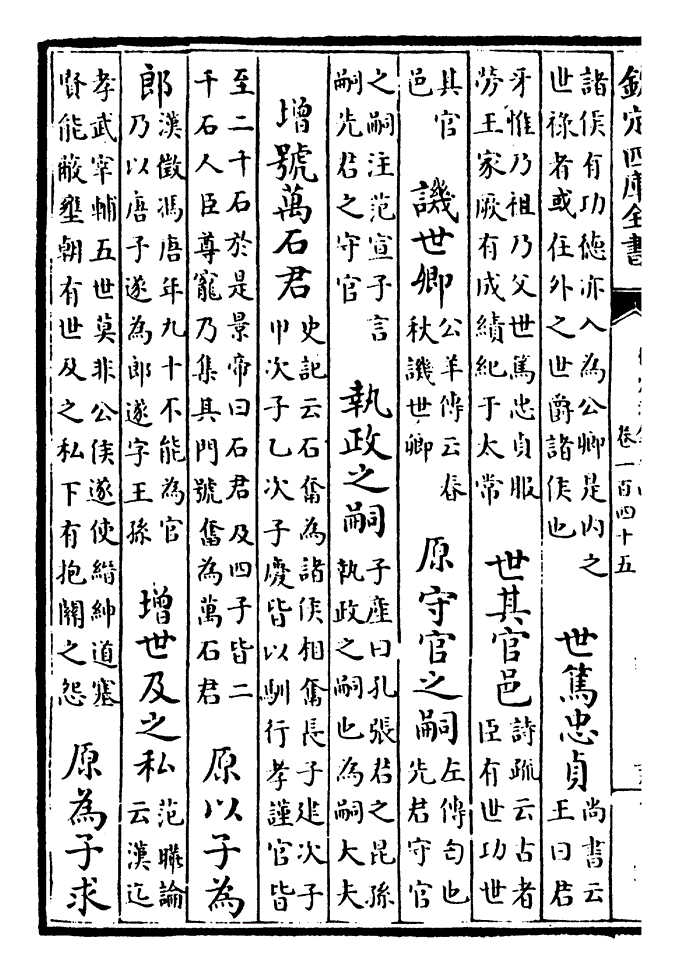 欽定四庫全書 卷一百四十五
諸侯有功德亦入為公卿是内之世祿者或住外之世爵諸侯也 世篤忠貞 尚書云王曰君
牙惟乃祖乃父世篤忠貞服勞王家厥有成績紀于太常 世其官邑 詩疏云古者臣有世功世
其官邑 譏世卿 公羊傳云春秋譏世卿 原守官之嗣 左傳匄也先君守官
之嗣注范宣子言嗣先君之守官 執政之嗣 子產曰孔張君之昆孫執政之嗣也為嗣大夫
增號萬石君 史記云石奮為諸侯相奮長子建次子甲次子乙次子慶皆以馴行孝謹官皆
至二千石於是景帝曰石君及四子皆二千石人臣尊寵乃集其門號奮為萬石君 原以子為
郎 漢徵馮唐年九十不能為官乃以唐子遂為郎遂字王孫 增世及之私 范曄論云漢迄
孝武宰輔五世莫非公侯遂使縉紳道塞賢能蔽壅朝有世及之私下有抱關之怨 原為子求